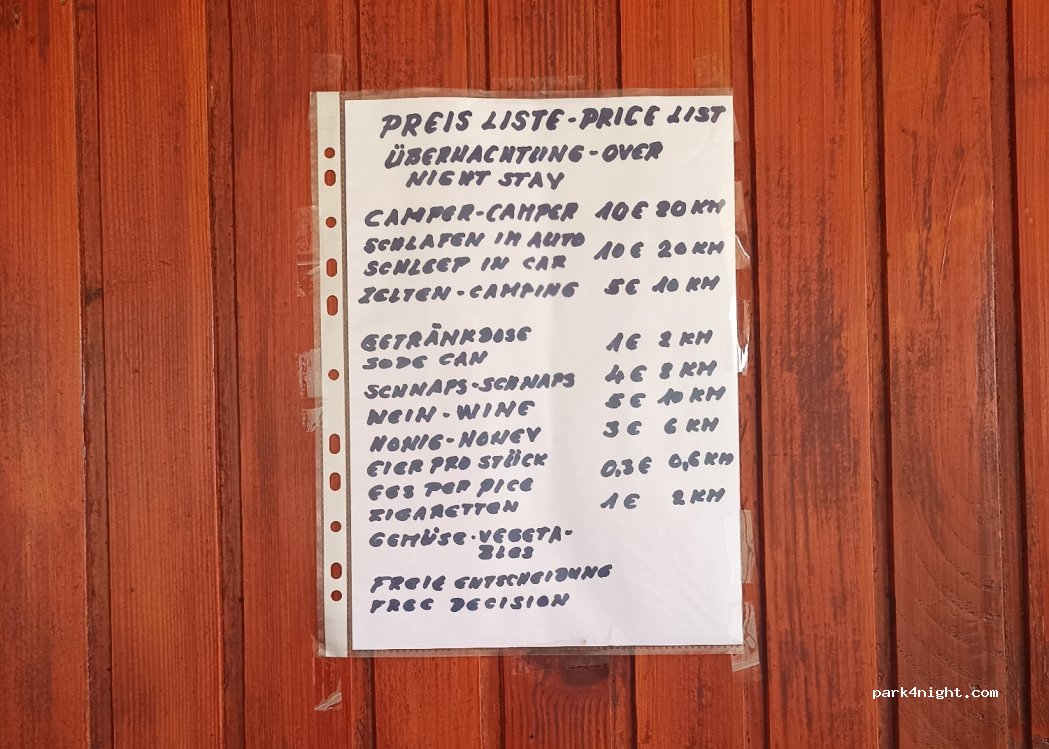 PREIS LISTE-PRICE LIST
ÜBERNACHTUNG-OVER
NIGHT STAY
CAMPER-CAMPER 10€ 20 KM
SCHLAFEN IM AUTO
SCHLEEP IN CAR 10€ 20 KM
ZELTEN-CAMPING 5€ 10 KM
GETRÄNKDOSE
SODE CAN 1€ 2 KM
SCHNAPS-SCHNAPS 4€ 8 KM
WEIN-WINE 5€ 10 KM
HONIG-HONEY 3€ 6 KM
EIER PRO STÜCK
EGS PER PICE 0,3€ 0,6 KM
ZIGARETTEN 1€ 2 KM
GEMÜSE-VEGETA-
BLES
FREIE ENTSCHEIDUNG
FREE DECISION
park4night.com